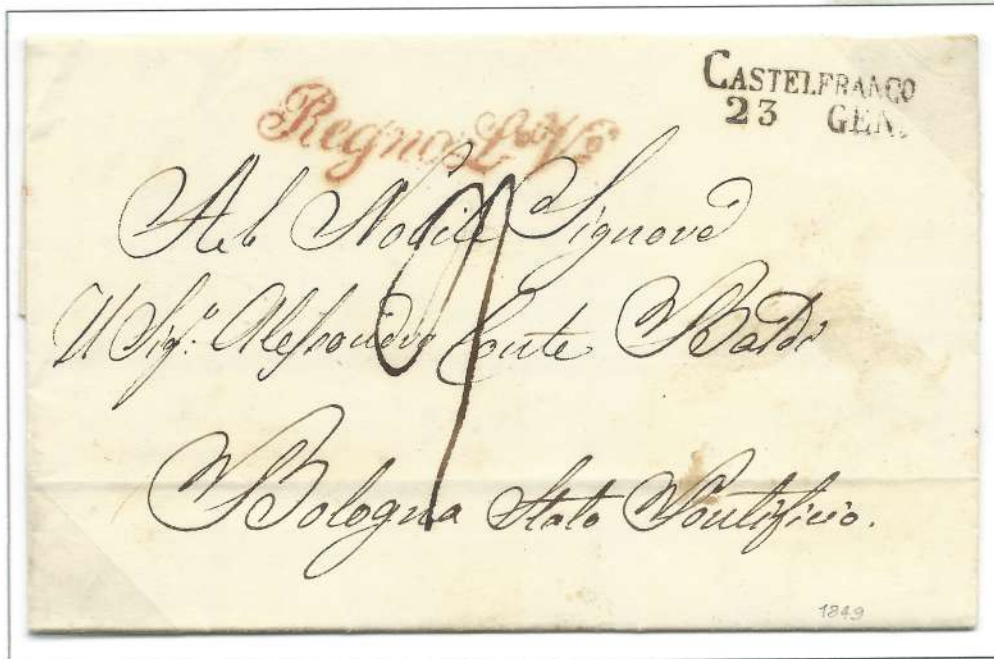 CASTELFRANCO
23 GEN.
Regno L.º V.º
Al Nobile Signore
Il Sigr. Alessandro Conte Bardi
Bologna Stato Pontificio.
1849